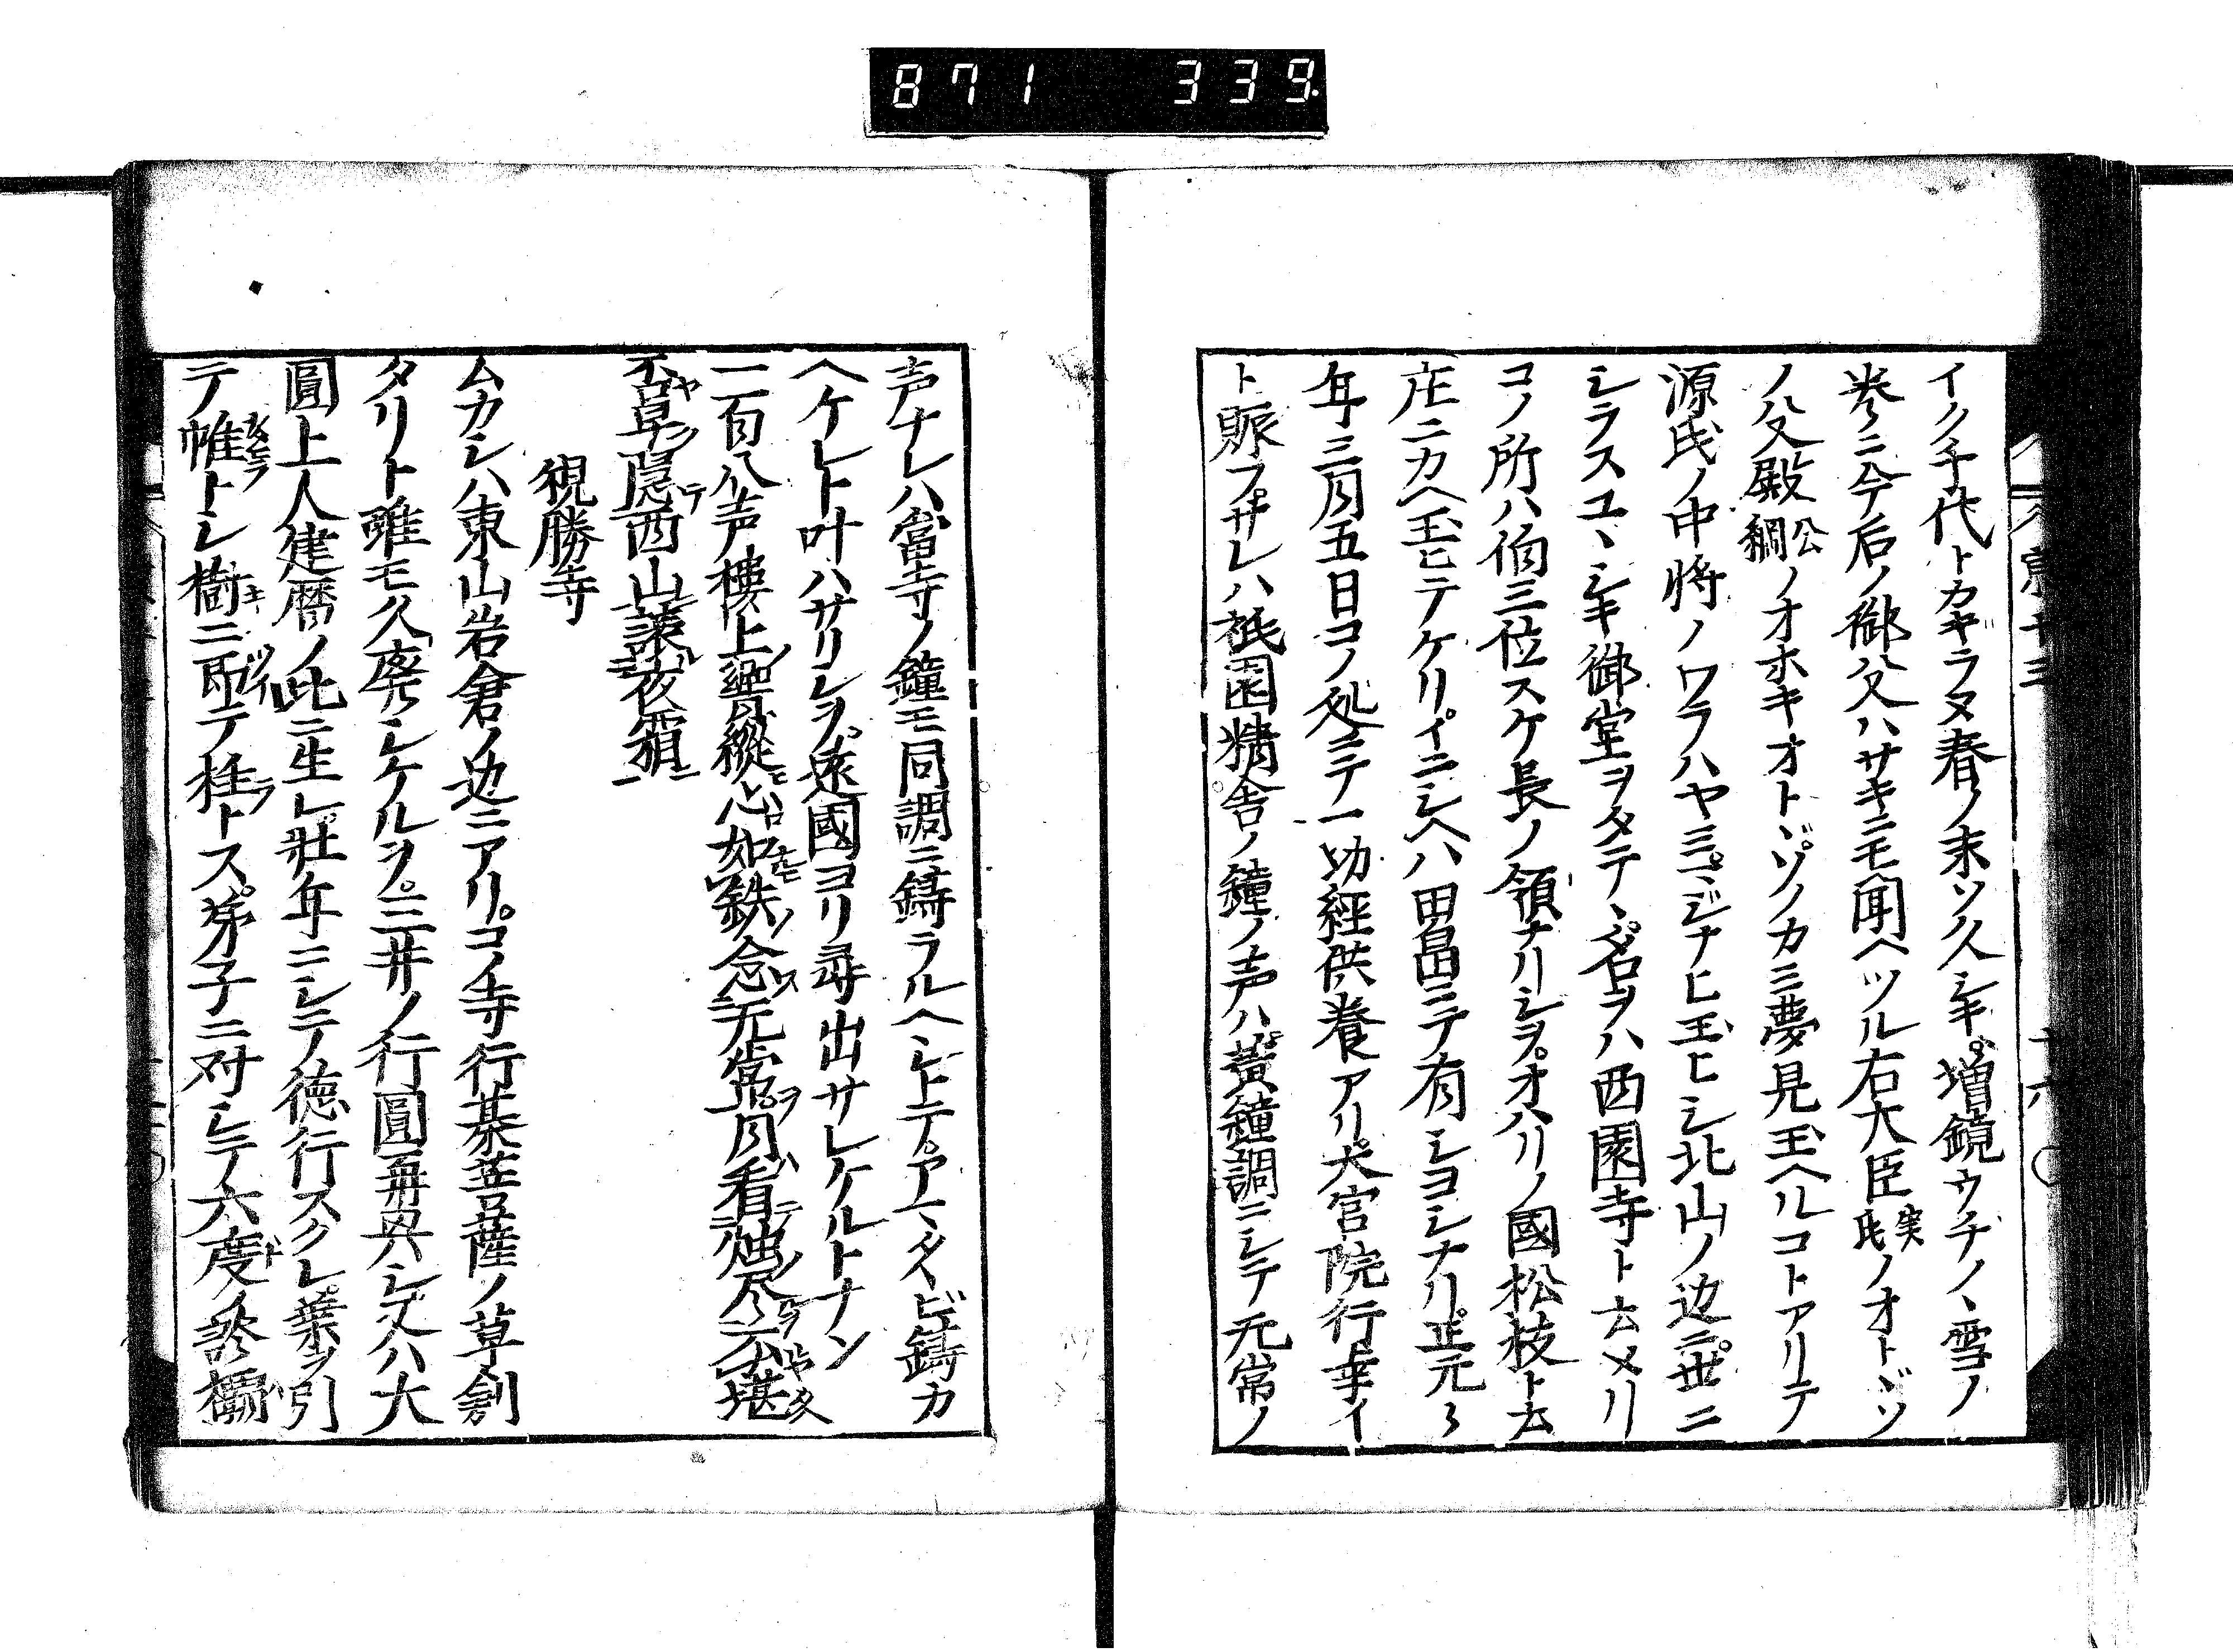 871 339
イク千代トカギラヌ春ノ末ソ久シキ。増鏡ウチノヽ雪コノ
巻ニ今后ノ御父ハサキニモ聞ヘツル右大臣実氏ノオトヾソ
ノ父殿公綱ノオホキオトヾソノカミ夢見玉ヘルコトアリテ
源氏ノ中将ノワラハヤミマジナヒ玉ヒシ北山ノ辺ニ。世ニ
シラスユヽシキ御堂ヲタテヽ。名ヲハ西園寺ト云メリ
コノ所ハ伯三位スケ長ノ領ナリシヲ。オハリノ國松枝ト云
庄ニカヘ玉ヒテケリ。イニシヘハ田畠ニテ有シヨシナリ。正元々
年三月五日コノ処ニテ一切經供養アリ。大宮院行幸イ
ト賑フ。サレハ祇園精舎ノ鐘ノ声ハ。黄鐘調ニシテ无常ノ
声ナレハ當寺ノ鐘モ同調ニ鋳ラルヘシトテ。アマタヽビ鋳カ
ヘケレト叶ハサリシヲ。遠國ヨリ尋出サレケルトナン
一百八声樓上響縱心如鉄念无常月看燭尽云堪
否草隠西山讓夜霜
観勝寺
ムカシハ東山岩倉ノ辺ニアリ。コノ寺行基菩薩ノ草創
タリト雖モ久廃シケルヲ。三井ノ行圓再興シ又ハ大
圓上人建暦ノ比ニ生レ。壮年ニシテノ徳行スクレ。葉ヲ引
テ帷トシ樹ニ配テ柱トス。弟子ニ対シテノ六度ノ